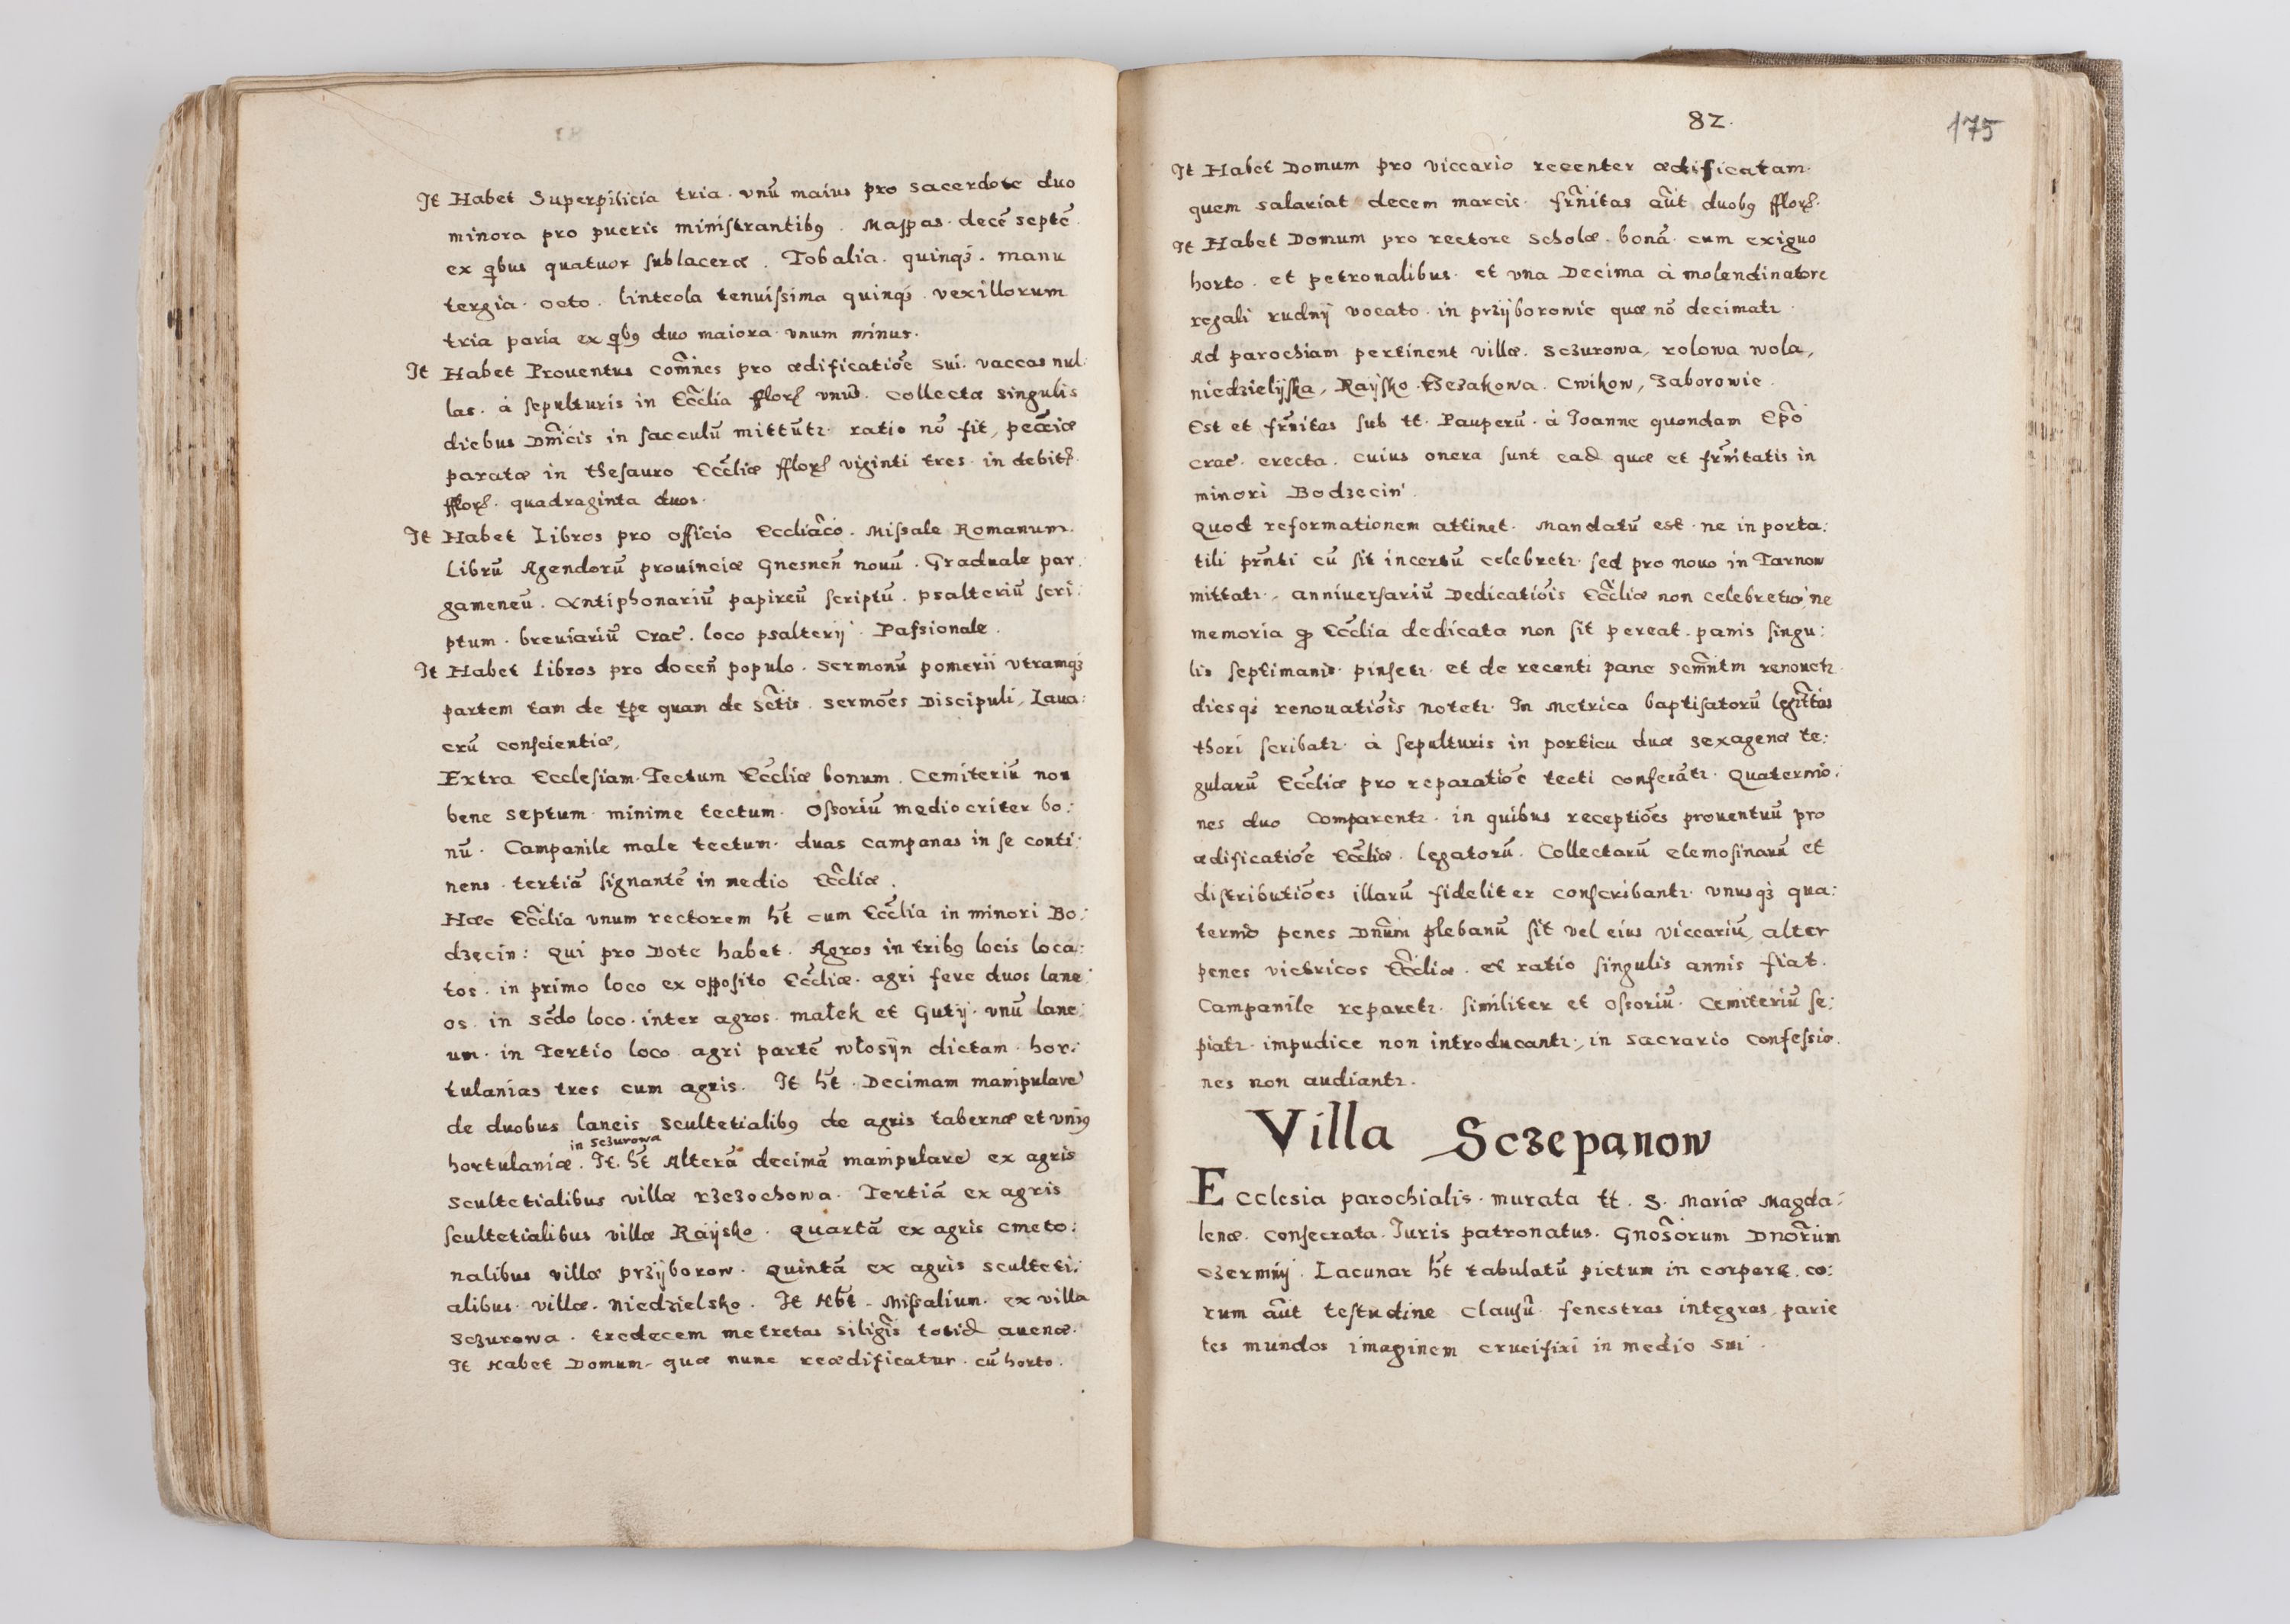 It Habet Superpilicia tria. vnū maius pro sacerdote duo
minora pro pueris ministrantibꝯ. Mappas decē septē.
ex qbus quatuor sublaceræ. Tobalia. quinqꝫ. manu
tergia. octo. linteola tenuissima quinqꝫ. vexillorum
tria paria ex qbꝯ duo maiora vnum minus.
It Habet Prouentus com̃nes pro ædificatiõe sui. vaccas nul:
las. à sepulturis in Eccl̃ia fflor̃ vnū. Collectæ singulis
diebus Dm̃icis in sacculū mittūtr. ratio nõ fit, pecc̃iæ
paratæ in thesauro Eccl̃iæ fflor̃ viginti tres. in debit̃.
fflor̃. quadraginta duos.
It Habet Libros pro officio Eccliac̃o. Missale Romanum.
Librū Agendorū prouinciæ Gnesnen̄ nouū. Graduale par:
gameneū. Antiphonariū papireū scriptū. psalteriū scri:
ptum. breuiariū Crac̃. loco psalterij. Passionale.
It Habet Libros pro docen̄ populo. Sermonū pomerii vtramqꝫ
partem tam de tp̃e quam de Sc̃tis. Sermões Discipuli, Laua:
crū conscientiæ,
Extra Ecclesiam. Tectum Eccl̃iæ bonum. Cemiteriū non
bene septum. minime tectum. Ossoriū mediocriter bo:
nū. Campanile male tectum. duas campanas in se conti:
nens. tertiā signantē in medio Eccl̃iæ.
Hæc Eccl̃ia vnum rectorem h̃t cum Eccl̃ia in minori Bo:
dzęcin: Qui pro Dote habet. Agros in tribꝯ locis loca:
tos. in primo loco ex opposito Eccl̃iæ. agri fere duos lane:
os. in Sc̃do loco. inter agros. małek et Guty. vnū lane:
um. in Tertio loco agri partē włosÿn dictam. hor:
tulanias tres cum agris. It h̃t. Decimam manipulare
de duobus laneis Scultetialibꝯ de agris tabernæ et vniꝯ
in Sczurowa
hortulaniæ. It. h̃t Alterā decimā manipulare ex agris
Scultetialibus villæ rzezochowa. Tertiā ex agris
scultetialibus villæ Raÿsko. Quartā ex agris cmeto:
nalibus villæ przÿborow. Quintā ex agris sculteti:
alibus. villæ. Niedzielsko. It Hb̃t. Missalium. ex villa
Sczurowa. tredecem metretas siligĩs totid̃ auenæ.
It Habet Domum. quæ nunc reædificatur. cū horto.
82.
175
It Habet Domum pro viccario recenter ædificatam.
quem salariat decem marcis. fr̃nitas aũt duobꝯ fflor̃.
It Habet Domum pro rectore scholæ. bonā. cum exiguo
horto. et petronalibus. et vna Decima à molendinatore
regali rudnÿ vocato. in przÿborowie quæ nõ decimatr.
Ad parochiam pertinent villæ. Sczurowa, rolowa wola,
niedzielÿska, Raÿsko. rzezakowa. Cwikow, Zaborowie.
Est et fr̃nitas sub tt. Pauperū. à Joanne quondam Ep̃o
crac̃. erecta. cuius onera sunt ead̃ quæ et fr̃nitatis in
minori Bodzecin.
Quod reformationem attinet. Mandatū est. ne in porta:
tili pr̃nti cū sit incertū celebretr. sed pro nouo in Tarnow
mittatr, anniuersariū Dedicatiõis Eccl̃iæ non celebretur, ne
memoria ꝙ Eccl̃ia dedicata non sit pereat. panis singu:
lis septimanis. pinsetr. et de recenti pane sem̃ntm renouetr.
diesqꝫ renouatiõis notetr. In Metrica baptisatorū legr̃ttas
thori scribatr. à sepulturis in porticu duæ sexagenæ te:
gularū Eccl̃iæ pro reparatiõe tecti conferātr. Quaternio:
nes duo comparentr. in quibus receptiões prouentuū pro
ædificatiõe Eccl̃iæ. legatorū. Collectarū elemosinarū et
distributiões illarū fideliter conscribantr. vnusqꝫ qua:
ternio penes Dnũm plebanū sit vel eius viccariū, alter
penes victricos Eccl̃iæ. et ratio singulis annis fiat.
Campanile reparetr. similiter et Ossoriū. Cemiteriū se:
piatr. impudicæ non introducantr, in sacrario confessio.
nes non audiantr.
Villa Sczepanow
Ecclesia parochialis. murata tt. S. Mariæ Magda:
lenæ. consecrata. Juris patronatus. Gnos̃orum Dnor̃um
czermnÿ. Lacunar h̃t tabulatū pictum in corpore. co:
rum aũt testudine clausū. fenestras integras, parie
tes mundos imaginem crucifixi in medio sui.